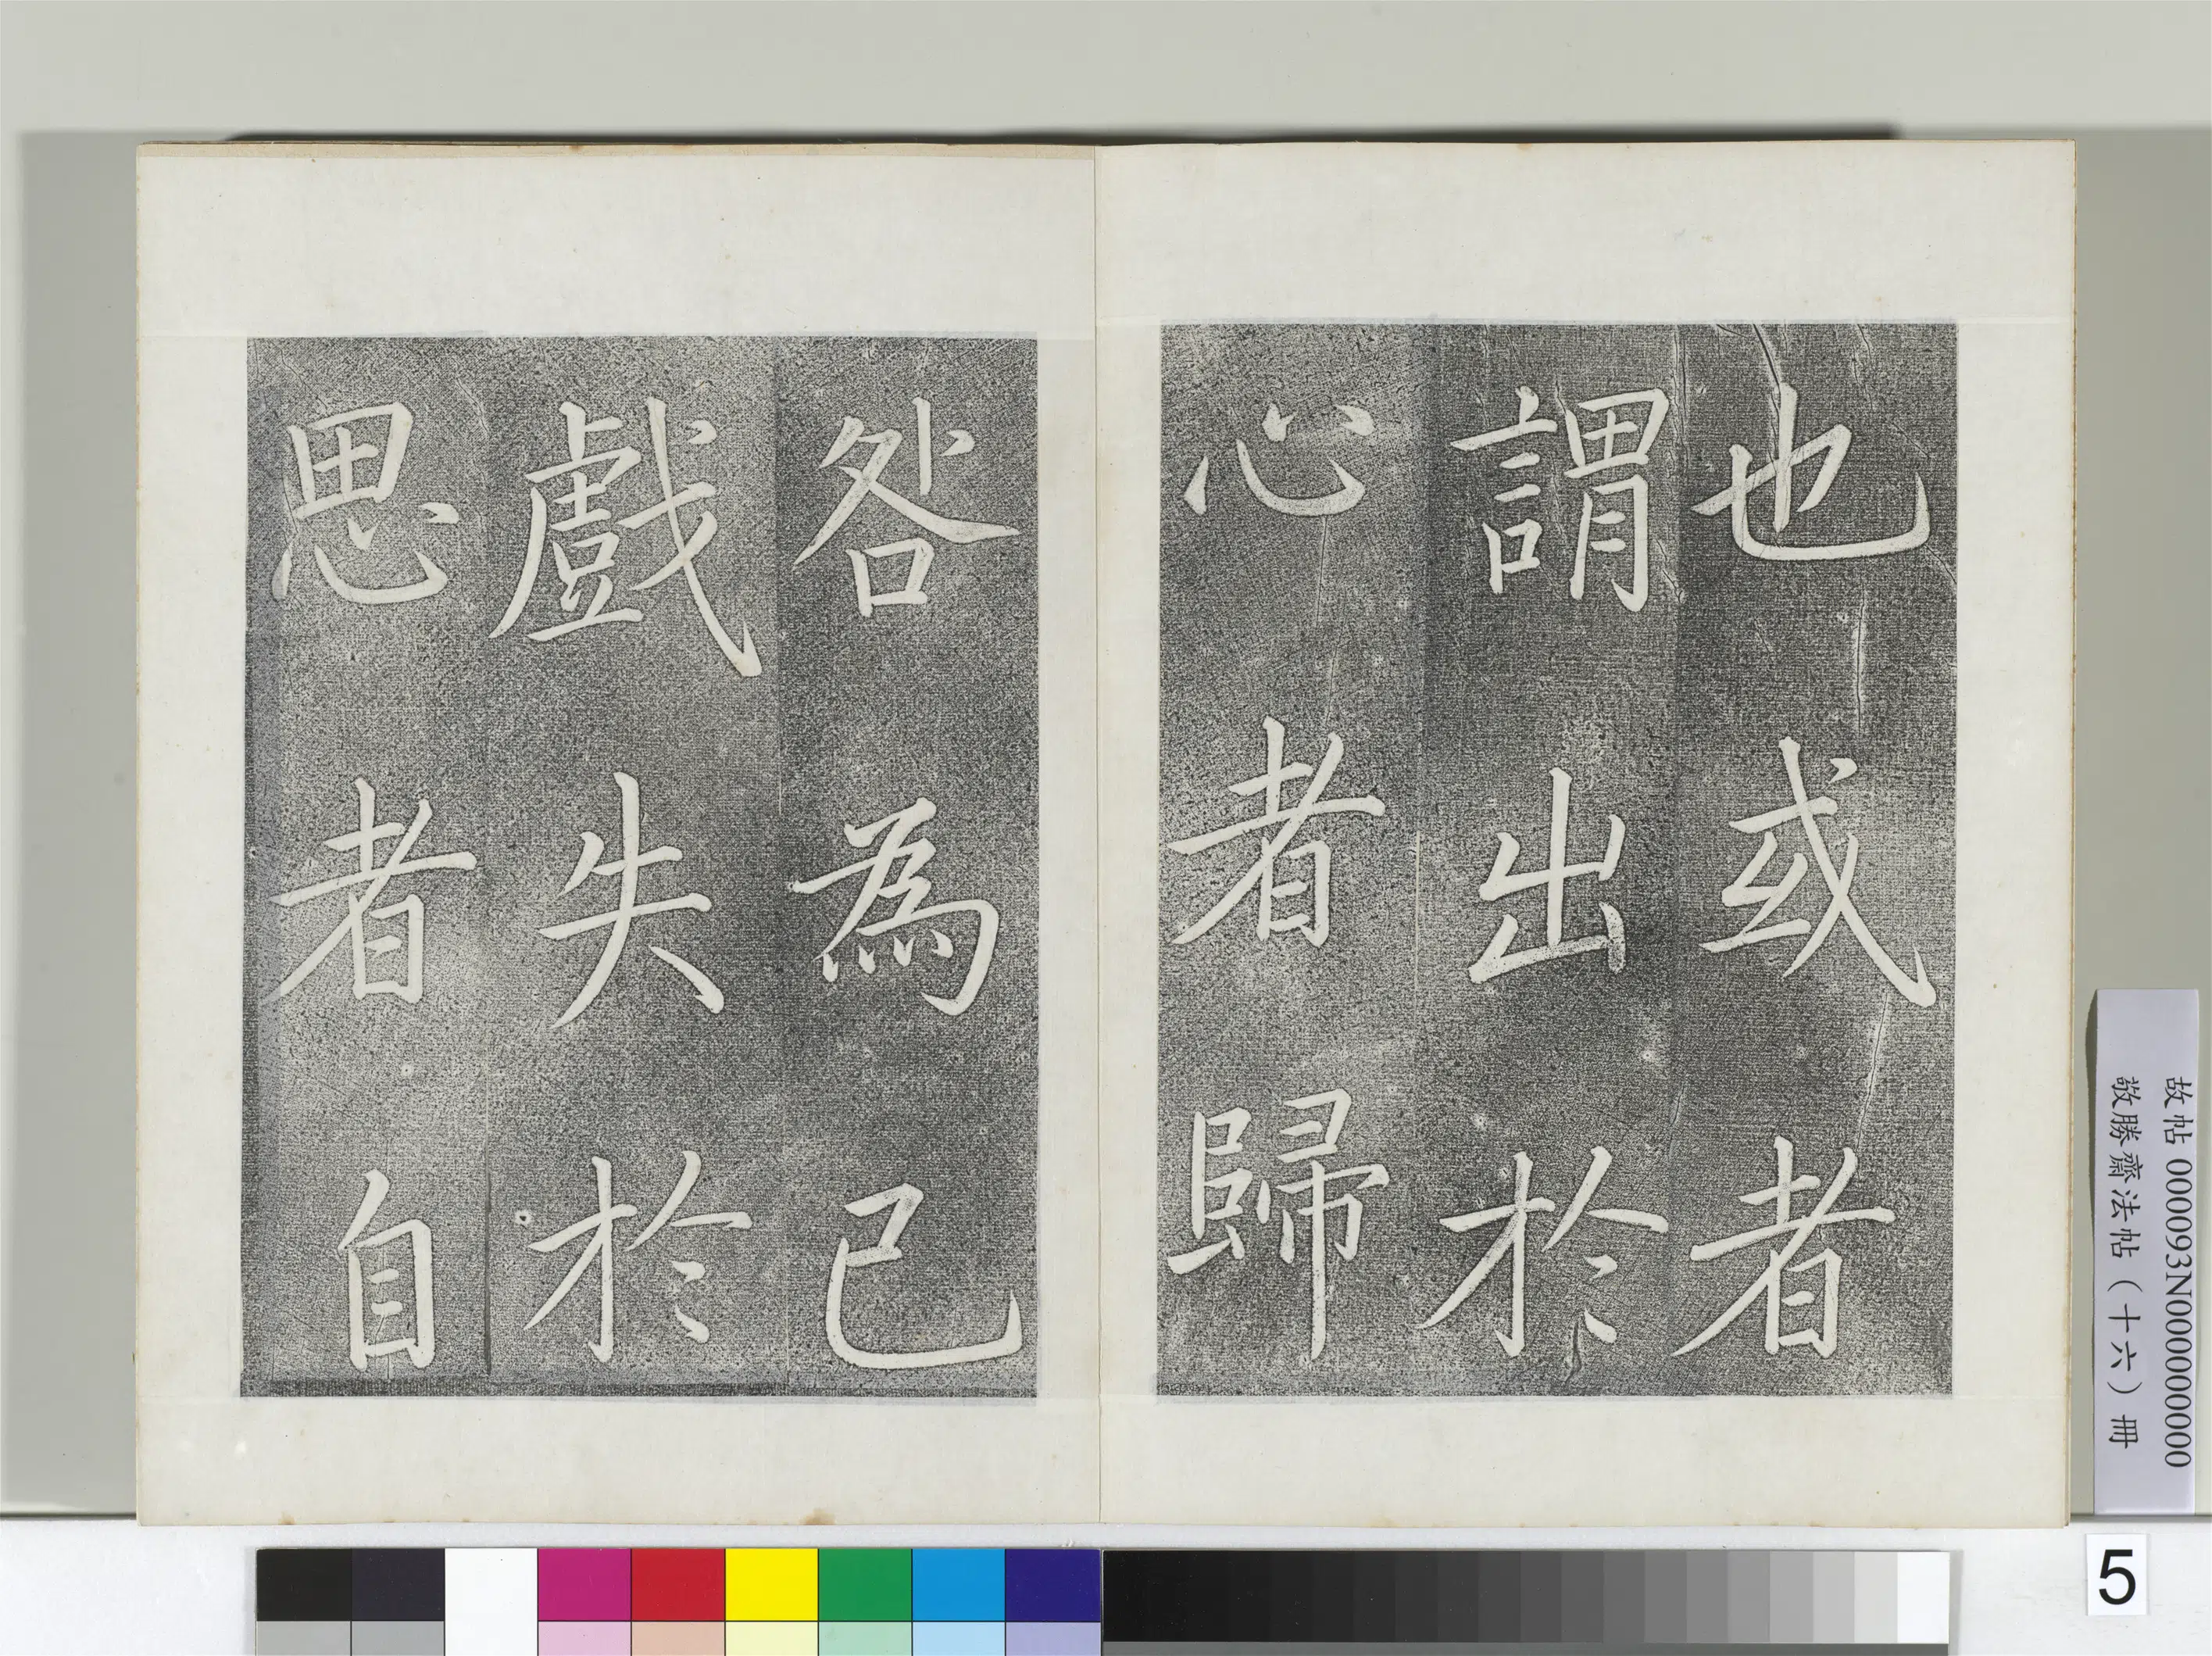 也或者
謂出於
心者歸
咎為己
戲失於
思者自
故帖 000093N000000000
敬勝齋法帖（十六）冊
5